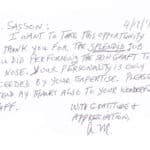 SASSON: 4/1
I WANT TO TAKE THIS OPPORTUNITY
THANK YOU FOR THE SPLENDID JOB
U DID PERFORMING THE SKIN GRAFT TO
NOSE. YOUR PERSONALITY IS ONLY
CEEDED BY YOUR EXPERTISE. PLEASE
TEND MY THANKS ALSO TO YOUR WONDERFUL
AFF.
WITH GRATITUDE &
APPRECIATION,